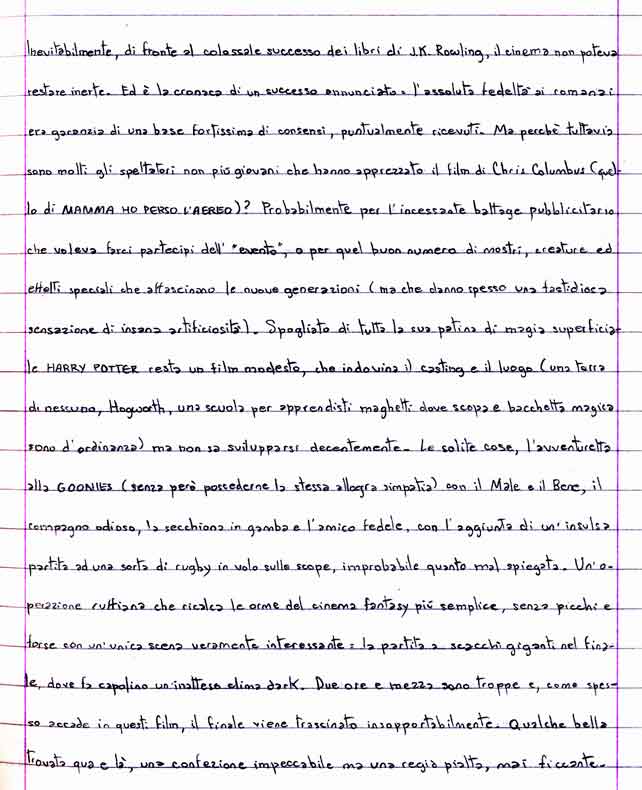 Inevitabilmente, di fronte al colossale successo dei libri di J.K. Rowling, il cinema non poteva
restare inerte. Ed è la cronaca di un successo annunciato: l'assoluta fedeltà ai romanzi
era garanzia di una base fortissima di consensi, puntualmente ricevuti. Ma perchè tuttavia
sono molti gli spettatori non più giovani che hanno apprezzato il film di Chris Columbus (quel-
lo di MAMMA HO PERSO L'AEREO)? Probabilmente per l'incessante battage pubblicitario
che voleva farci partecipi dell'"evento", o per quel buon numero di mostri, creature ed
effetti speciali che affascinano le nuove generazioni (ma che danno spesso una fastidiosa
sensazione di insana artificiosità). Spogliato di tutta la sua patina di magia superficia-
le HARRY POTTER resta un film modesto, che indovina il casting e il luogo (una terra
di nessuno, Hogworth, una scuola per apprendisti maghetti dove scopa e bacchetta magica
sono d'ordinanza) ma non sa svilupparsi decentemente. Le solite cose, l'avventuretta
alla GOONIES (senza però possederne la stessa allegra simpatia) con il Male e il Bene, il
compagno odioso, la secchiona in gamba e l'amico fedele, con l'aggiunta di un'insulsa
partita ad una sorta di rugby in volo sulle scope, improbabile quanto mal spiegata. Un'o-
perazione ruffiana che ricalca le orme del cinema fantasy più semplice, senza picchi e
forse con un'unica scena veramente interessante: la partita a scacchi giganti nel fina-
le, dove fa capolino un inatteso clima dark. Due ore e mezza sono troppe e, come spes-
so accade in questi film, il finale viene trascinato insopportabilmente. Qualche bella
trovata qua e là, una confezione impeccabile ma una regia piatta, mai ficcante.